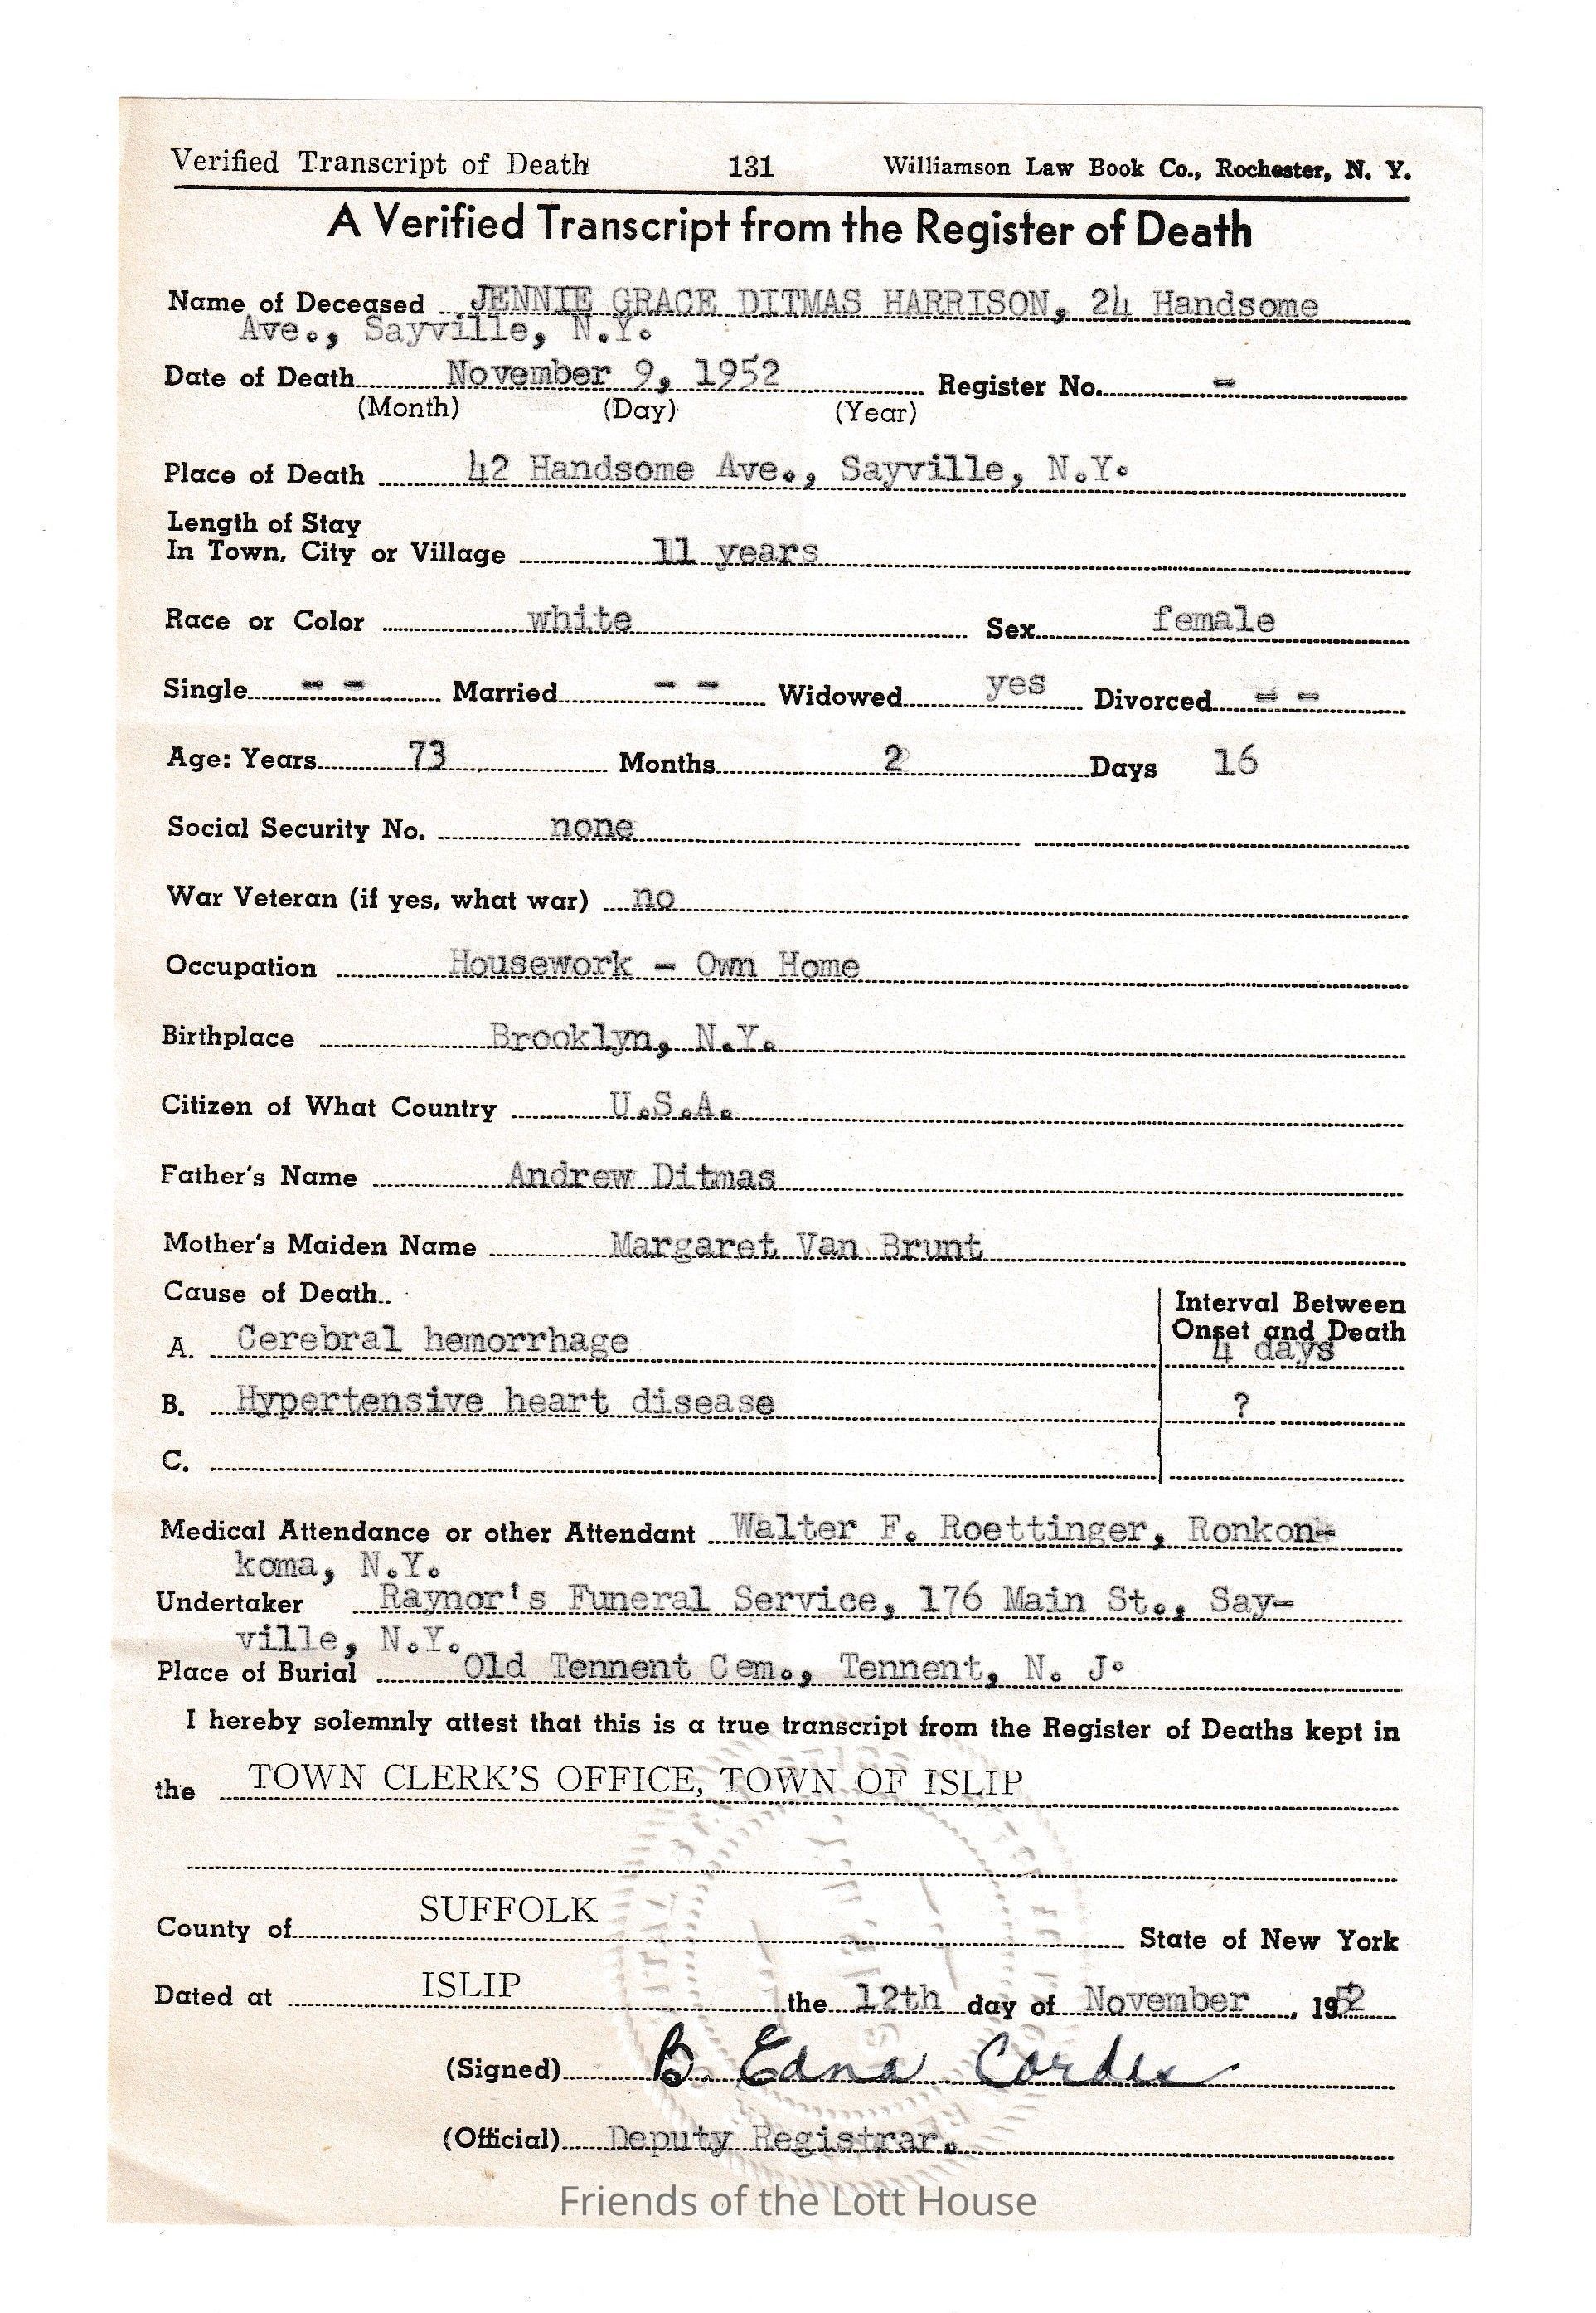 Verified Transcript of Death 131 Williamson Law Book Co., Rochester, N. Y.
A Verified Transcript from the Register of Death
Name of Deceased JENNIE GRACE DITMAS HARRISON, 24 Handsome
Ave., Sayville, N.Y.
Date of Death November 9, 1952 Register No. -
(Month) (Day) (Year)
Place of Death 42 Handsome Ave., Sayville, N.Y.
Length of Stay
In Town, City or Village 11 years
Race or Color white Sex female
Single - - Married - - Widowed yes Divorced - -
Age: Years 73 Months 2 Days 16
Social Security No. none
War Veteran (if yes, what war) no
Occupation Housework - Own Home
Birthplace Brooklyn, N.Y.
Citizen of What Country U.S.A.
Father's Name Andrew Ditmas
Mother's Maiden Name Margaret Van Brunt
Cause of Death.. Interval Between
Onset and Death
A. Cerebral hemorrhage 4 days
B. Hypertensive heart disease ?
C.
Medical Attendance or other Attendant Walter F. Roettinger, Ronkon-
koma, N.Y.
Undertaker Raynor's Funeral Service, 176 Main St., Say-
ville, N.Y.
Place of Burial Old Tennent Cem., Tennent, N. J.
I hereby solemnly attest that this is a true transcript from the Register of Deaths kept in
the TOWN CLERK'S OFFICE, TOWN OF ISLIP
County of SUFFOLK State of New York
Dated at ISLIP the 12th day of November, 1952
(Signed) B. Edna Cordes
(Official) Deputy Registrar.
Friends of the Lott House